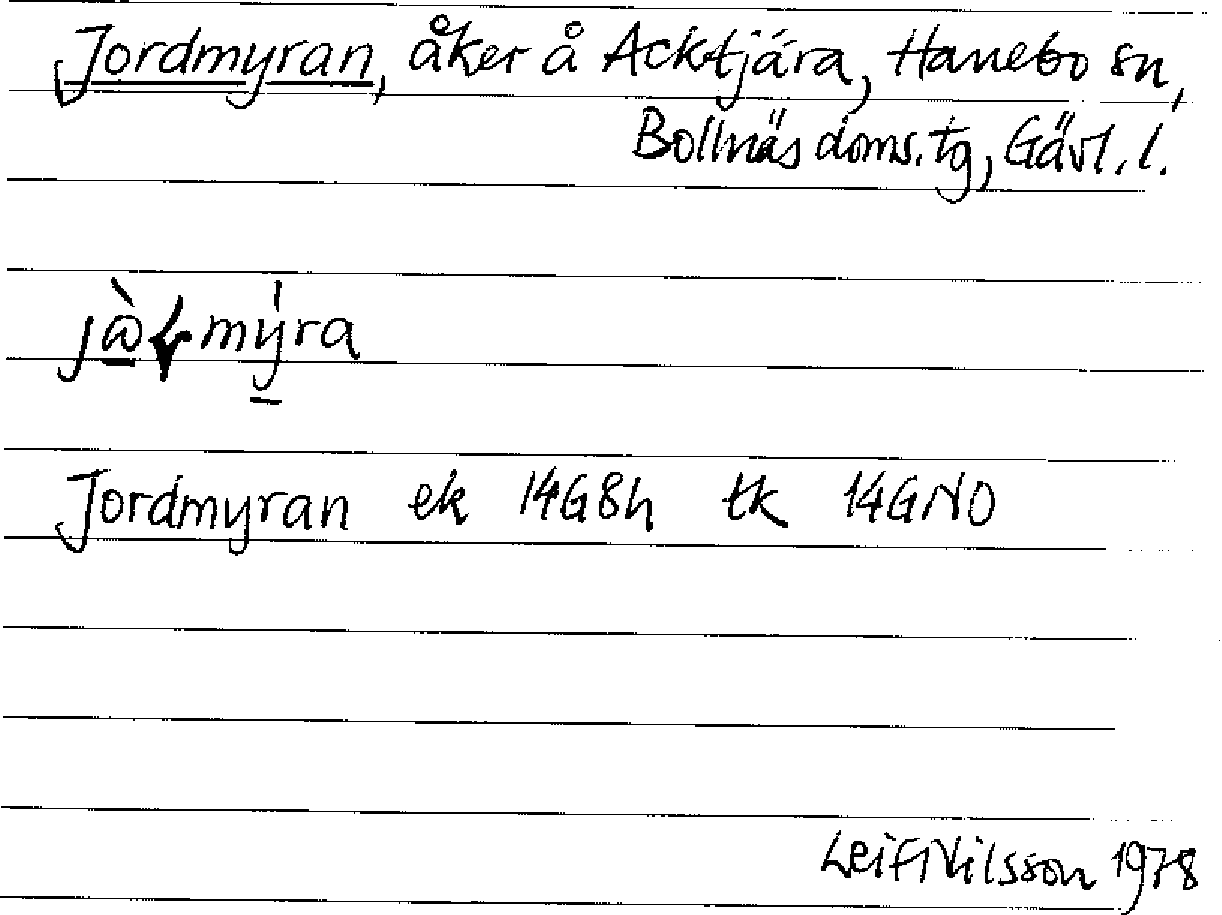 Jordmyran, åker å Acktjära, Hanebo sn,
Bollnäs doms.tg, Gävl. l.
mýra
Jordmyran ek 14G8h tk 14GNO
Leif Nilsson 1978